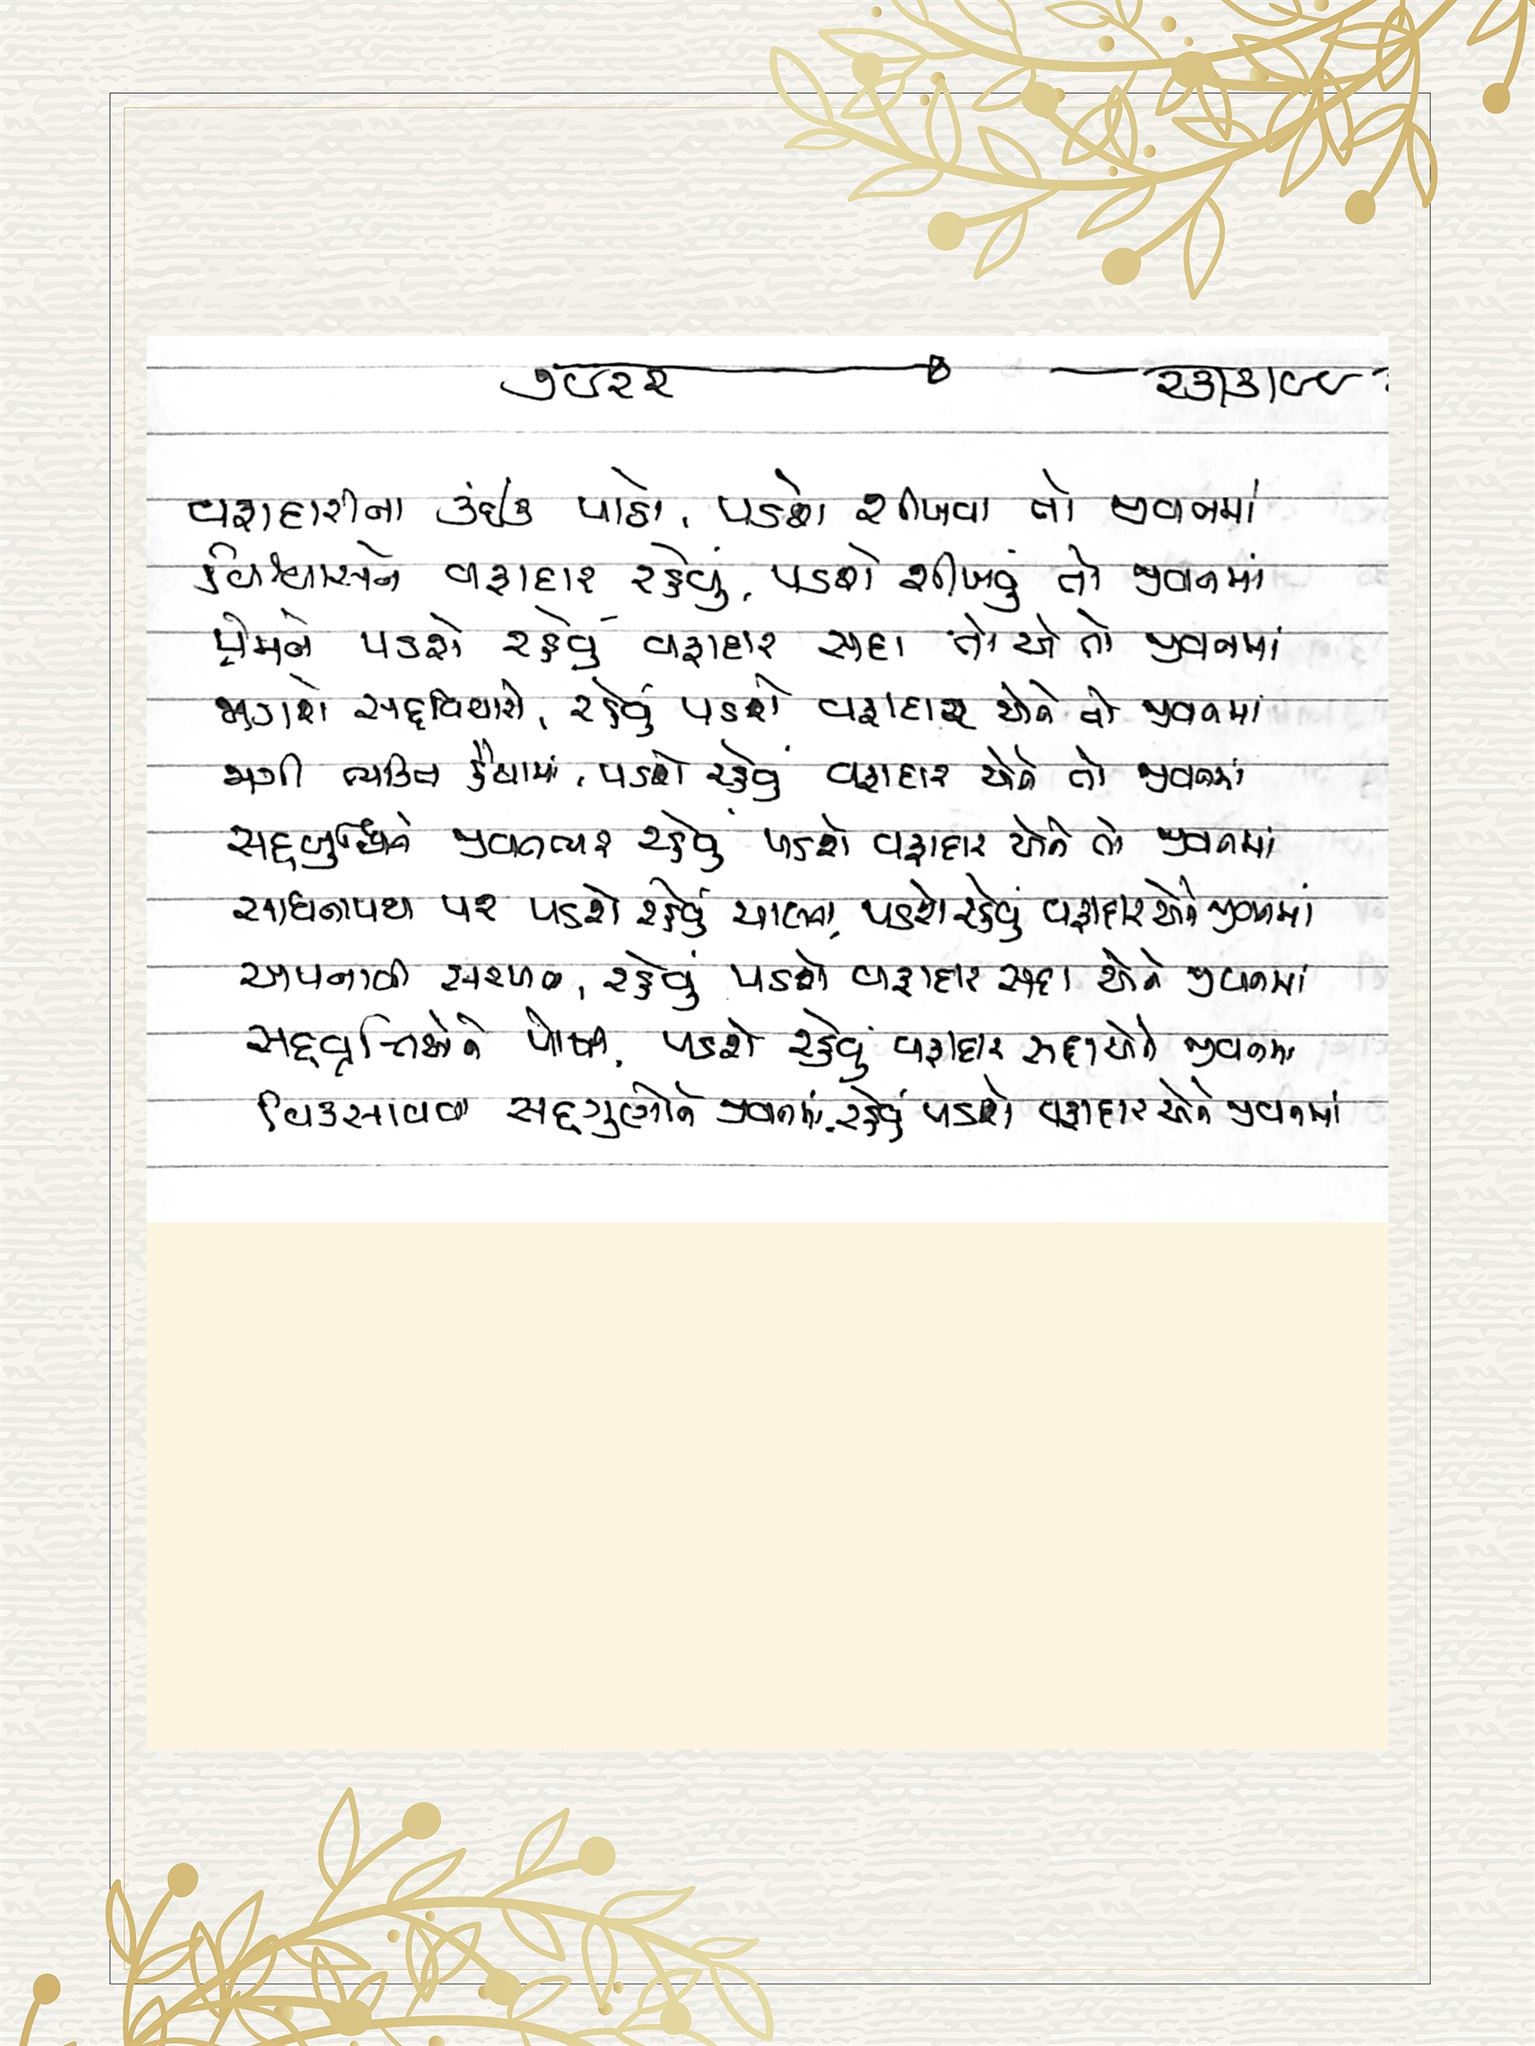 ૭૯૨૨ ૨૩/૩/૯૯
વફાદારીના કંઈક પાઠો, પડશે શીખવા તો જીવનમાં
વિશ્વાસને વફાદાર રહેવું, પડશે શીખવું તો જીવનમાં
પ્રેમને પડશે રહેવું વફાદાર સદા તો એ તો જીવનમાં
જાગશે સદ્દવિચારો, રહેવું પડશે વફાદાર એને તો જીવનમાં
જાગી વ્યક્તિ હૈયામાં, પડશે રહેવું વફાદાર એને તો જીવનમાં
સદ્દબુદ્ધિને જીવનભર રહેવું પડશે વફાદાર એને તો જીવનમાં
સાધનાપથ પર પડશે રહેવું ચાલવા, પડશે રહેવું વફાદાર એને જીવનમાં
અપનાવી સરળતા, રહેવું પડશે વફાદાર સદા એને જીવનમાં
સદ્દવૃત્તિઓને પોષી, પડશે રહેવું વફાદાર સદા એને જીવનમાં
વિકસાવવા સદ્દગુણોને જીવનમાં, રહેવું પડશે વફાદાર એને જીવનમાં